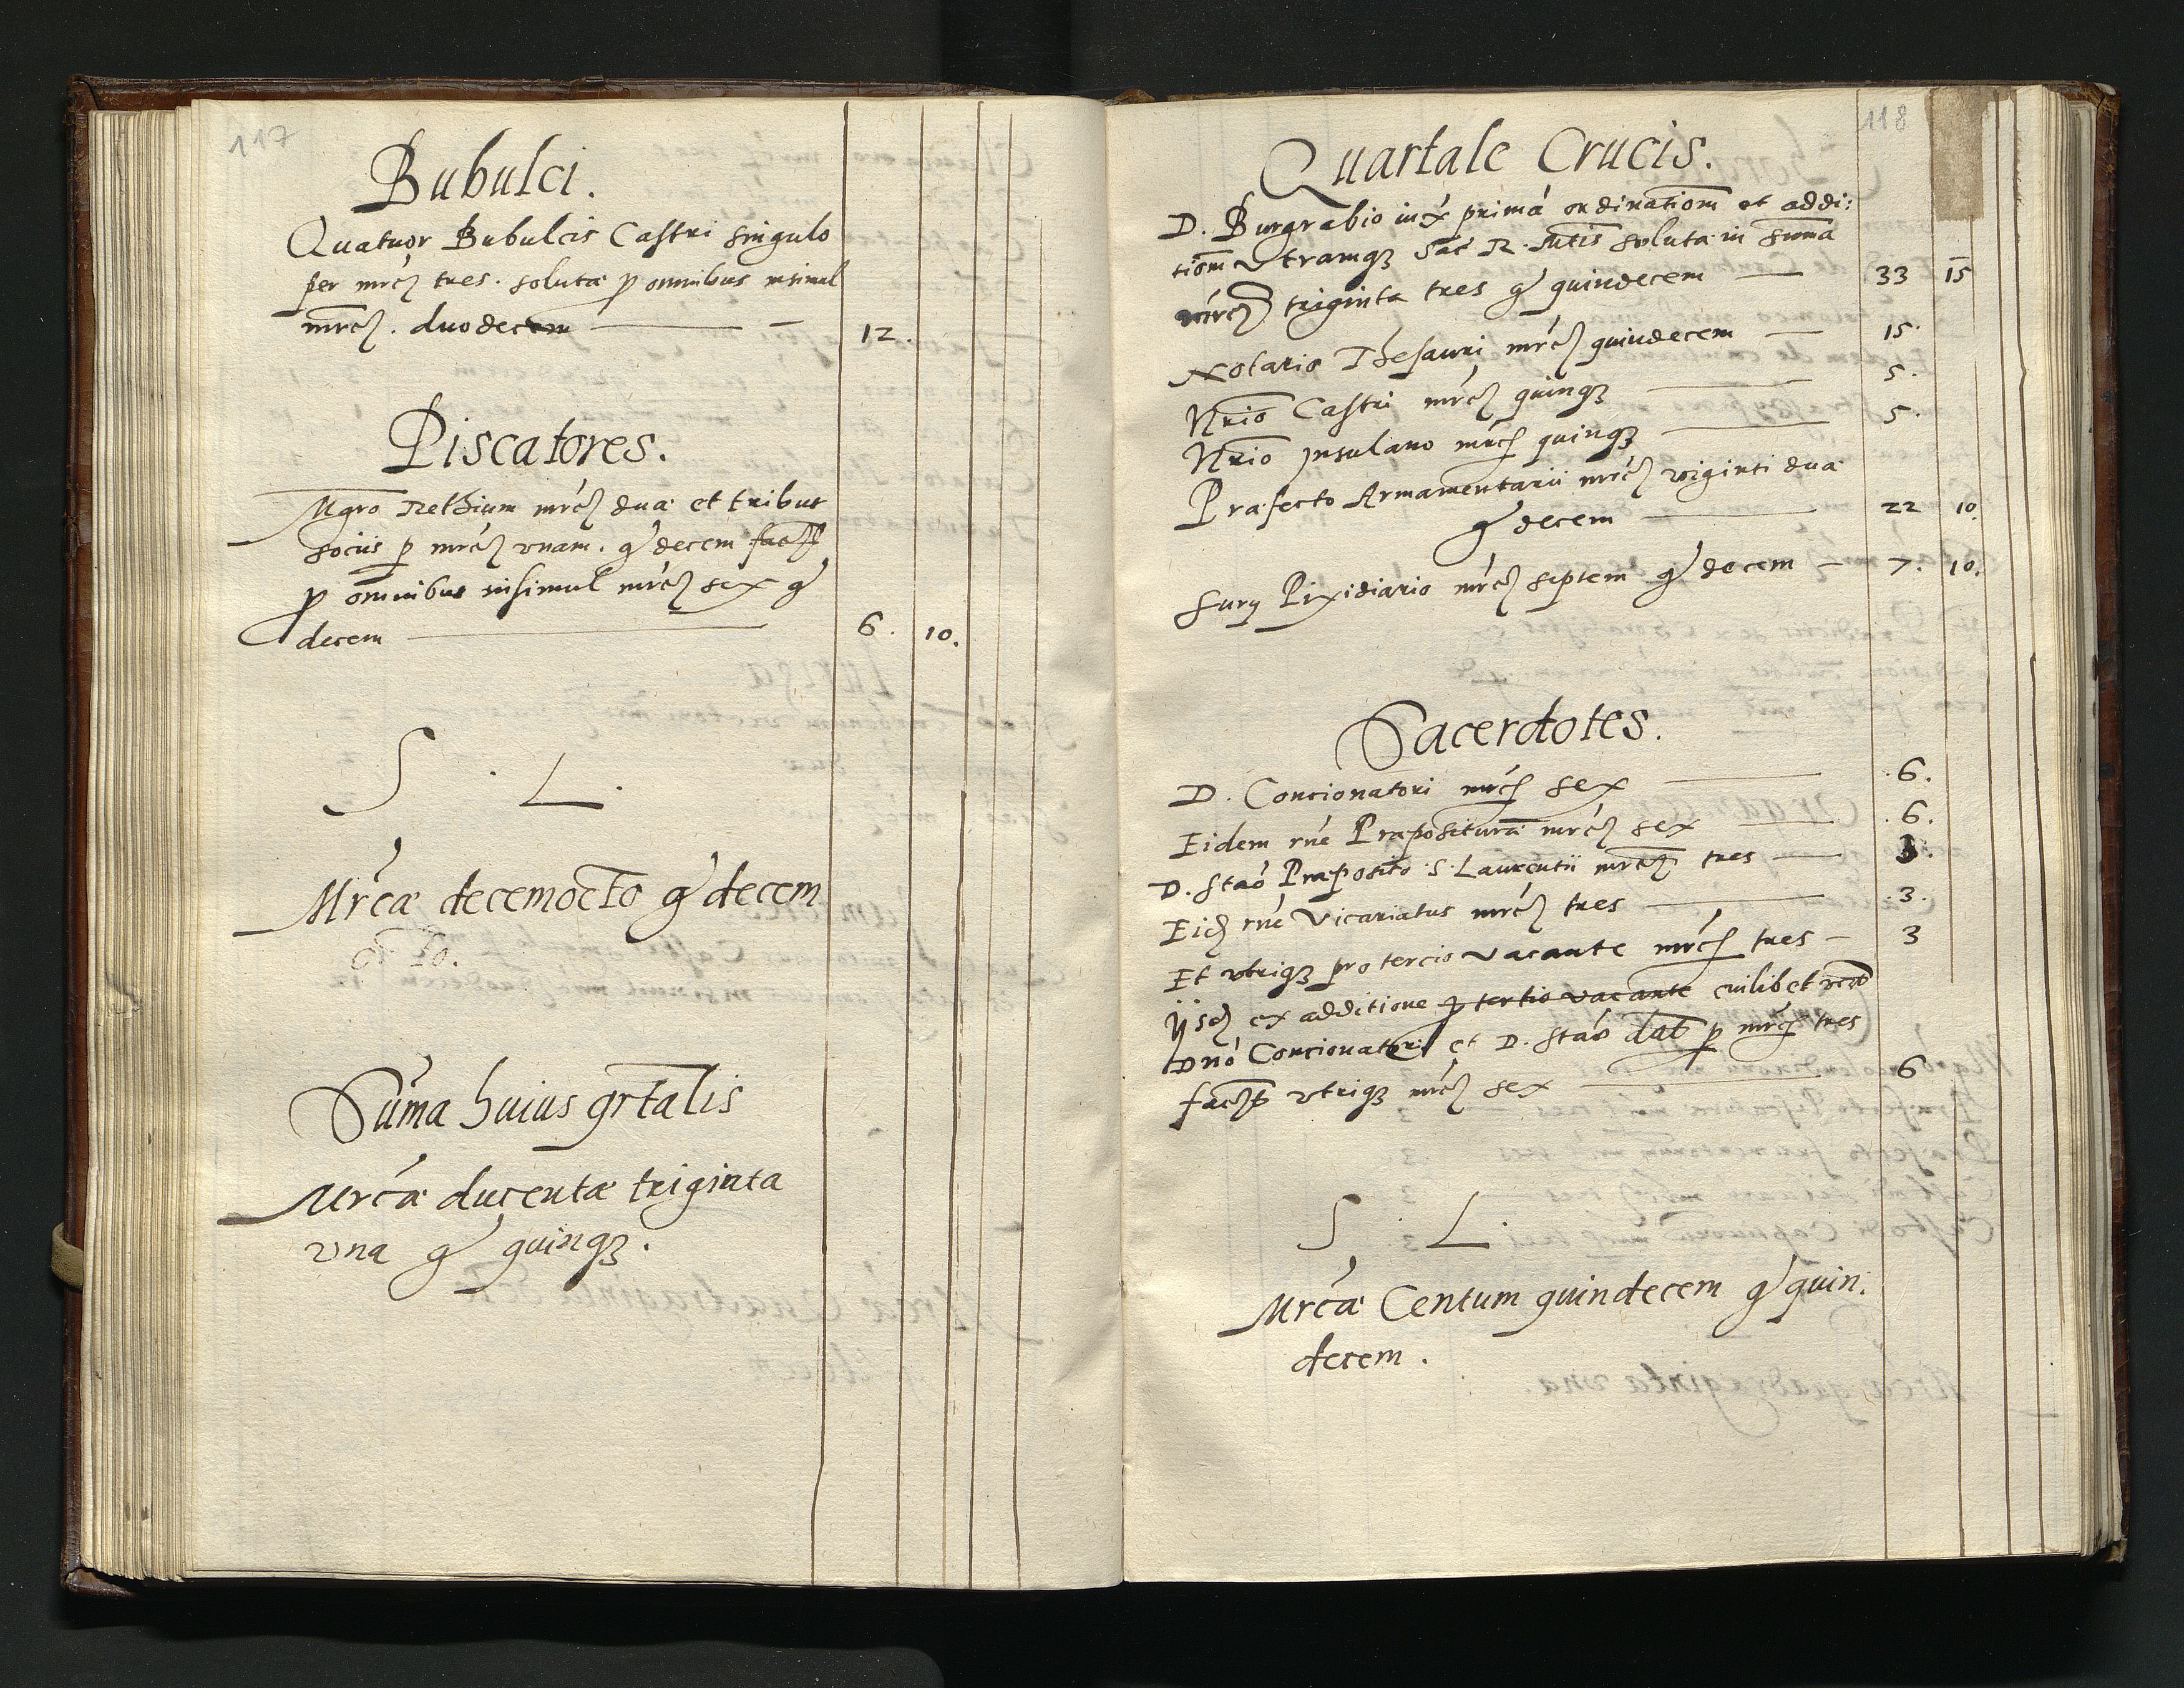 117
Bubulci.
Quatuor Bubulcis Castri singulo
per mrc̃ tres. soluta p omnibus insimul
mrc̃. duodecem — 12.
Piscatores.
Mgro Rethium mrc̃ dua et tribus
socijs p mrc̃ unam. g decem
p omnibus insimul mrc̃ sex g
decem — 6. 10.
S. L.
Mrca decemocto g decem
octo.
Suma huius qrtalis
Mrca ducenta triginta
una g quinqʒ.
118
Quartale Crucis.
D. Burgrabio prima ordinationem et addi:
tionem utramqʒ Sac R. Mtis soluta in suma
mrc̃ triginta tres g quindecem — 33 15
Notario Thesauri mrc̃ quindecem — 15.
Nrio Castri mrc̃ quinqʒ — 5.
Nrio Insulano mrc̃ quinqʒ — 5.
Præfecto Armamentarii mrc̃ viginti dua
g decem — 22 10.
Pixidiario mrc̃ septem g decem — 7. 10.
Sacerdotes.
D. Concionatori mrc̃ sex — 6.
Eidem rne Præpositura mrc̃ sex — 6.
D. Stao Præposito S. Laurentii mrc̃ tres — 3.
Eid rne Vicariatus mrc̃ tres — 3.
Et utriqʒ pro tercio vacante mrc̃ tres — 3
ijsd ex additione p tertio vacante cuilibet
Dno Concionatori et D. Stao dat p mrc̃ tres
utriqʒ mrc̃ sex — 6
S. L.
Mrca Centum quindecem g quin.
decem.